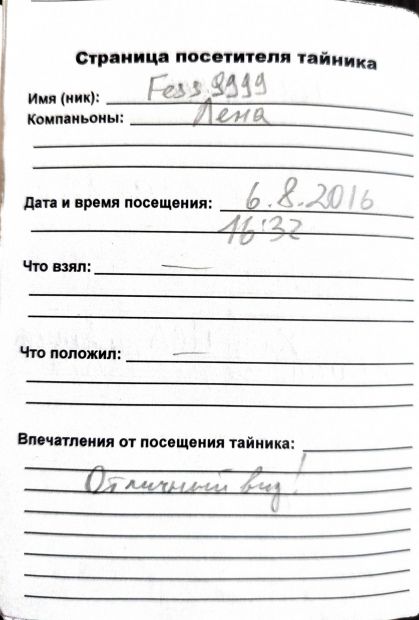 Страница посетителя тайника
Имя (ник): Fess9999
Компаньоны: Лена
Дата и время посещения: 6.8.2016
16:32
Что взял: —
Что положил: —
Впечатления от посещения тайника:
Отличный вид!